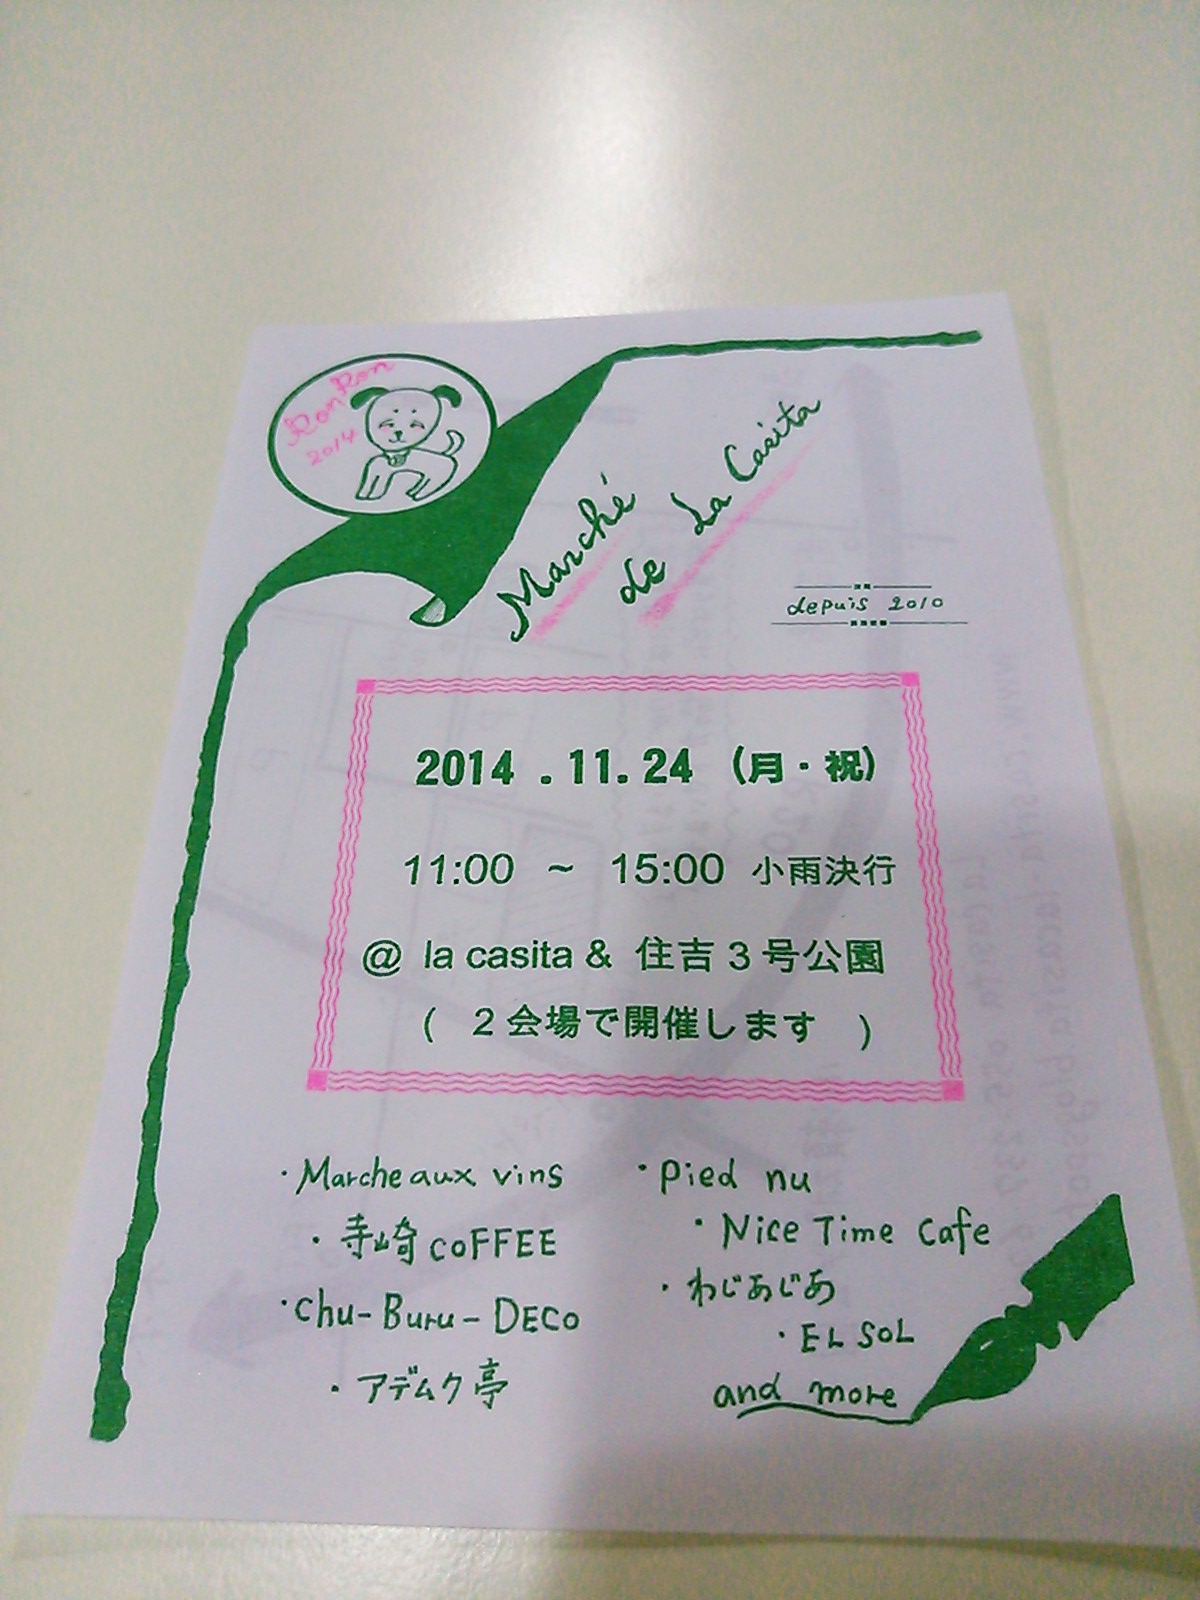 RonRon
2014
Marché
de La Casita
depuis 2010
2014 . 11. 24 (月・祝)
11:00 ~ 15:00 小雨決行
@ la casita & 住吉3号公園
( 2会場で開催します )
・Marche aux vins
・寺崎COFFEE
・Chu-Buru-DECO
・アデムク亭
・Pied nu
・Nice Time Cafe
・わじあじあ
・EL SOL
and more